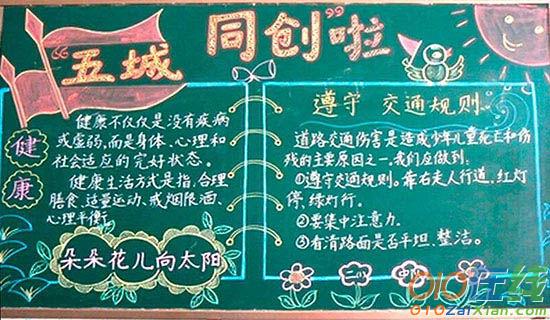 “五城同创”啦
健康
健康不仅仅是没有疾病
或虚弱,而是身体、心理和
社会适应的完好状态。
健康生活方式是指,合理
膳食、适量运动、戒烟限酒、
心理平衡。
朵朵花儿向太阳
遵守 交通规则。
道路交通伤害是造成少年儿童死亡和伤
残的主要原因之一。我们应做到:
①遵守交通规则。靠右走人行道,红灯
停,绿灯行。
②要集中注意力.
③看清路面是否平坦、整洁。
二
中
010在线
010zaixian.com